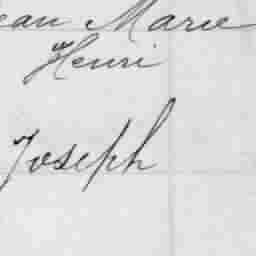 ean Marie
Henri
Joseph